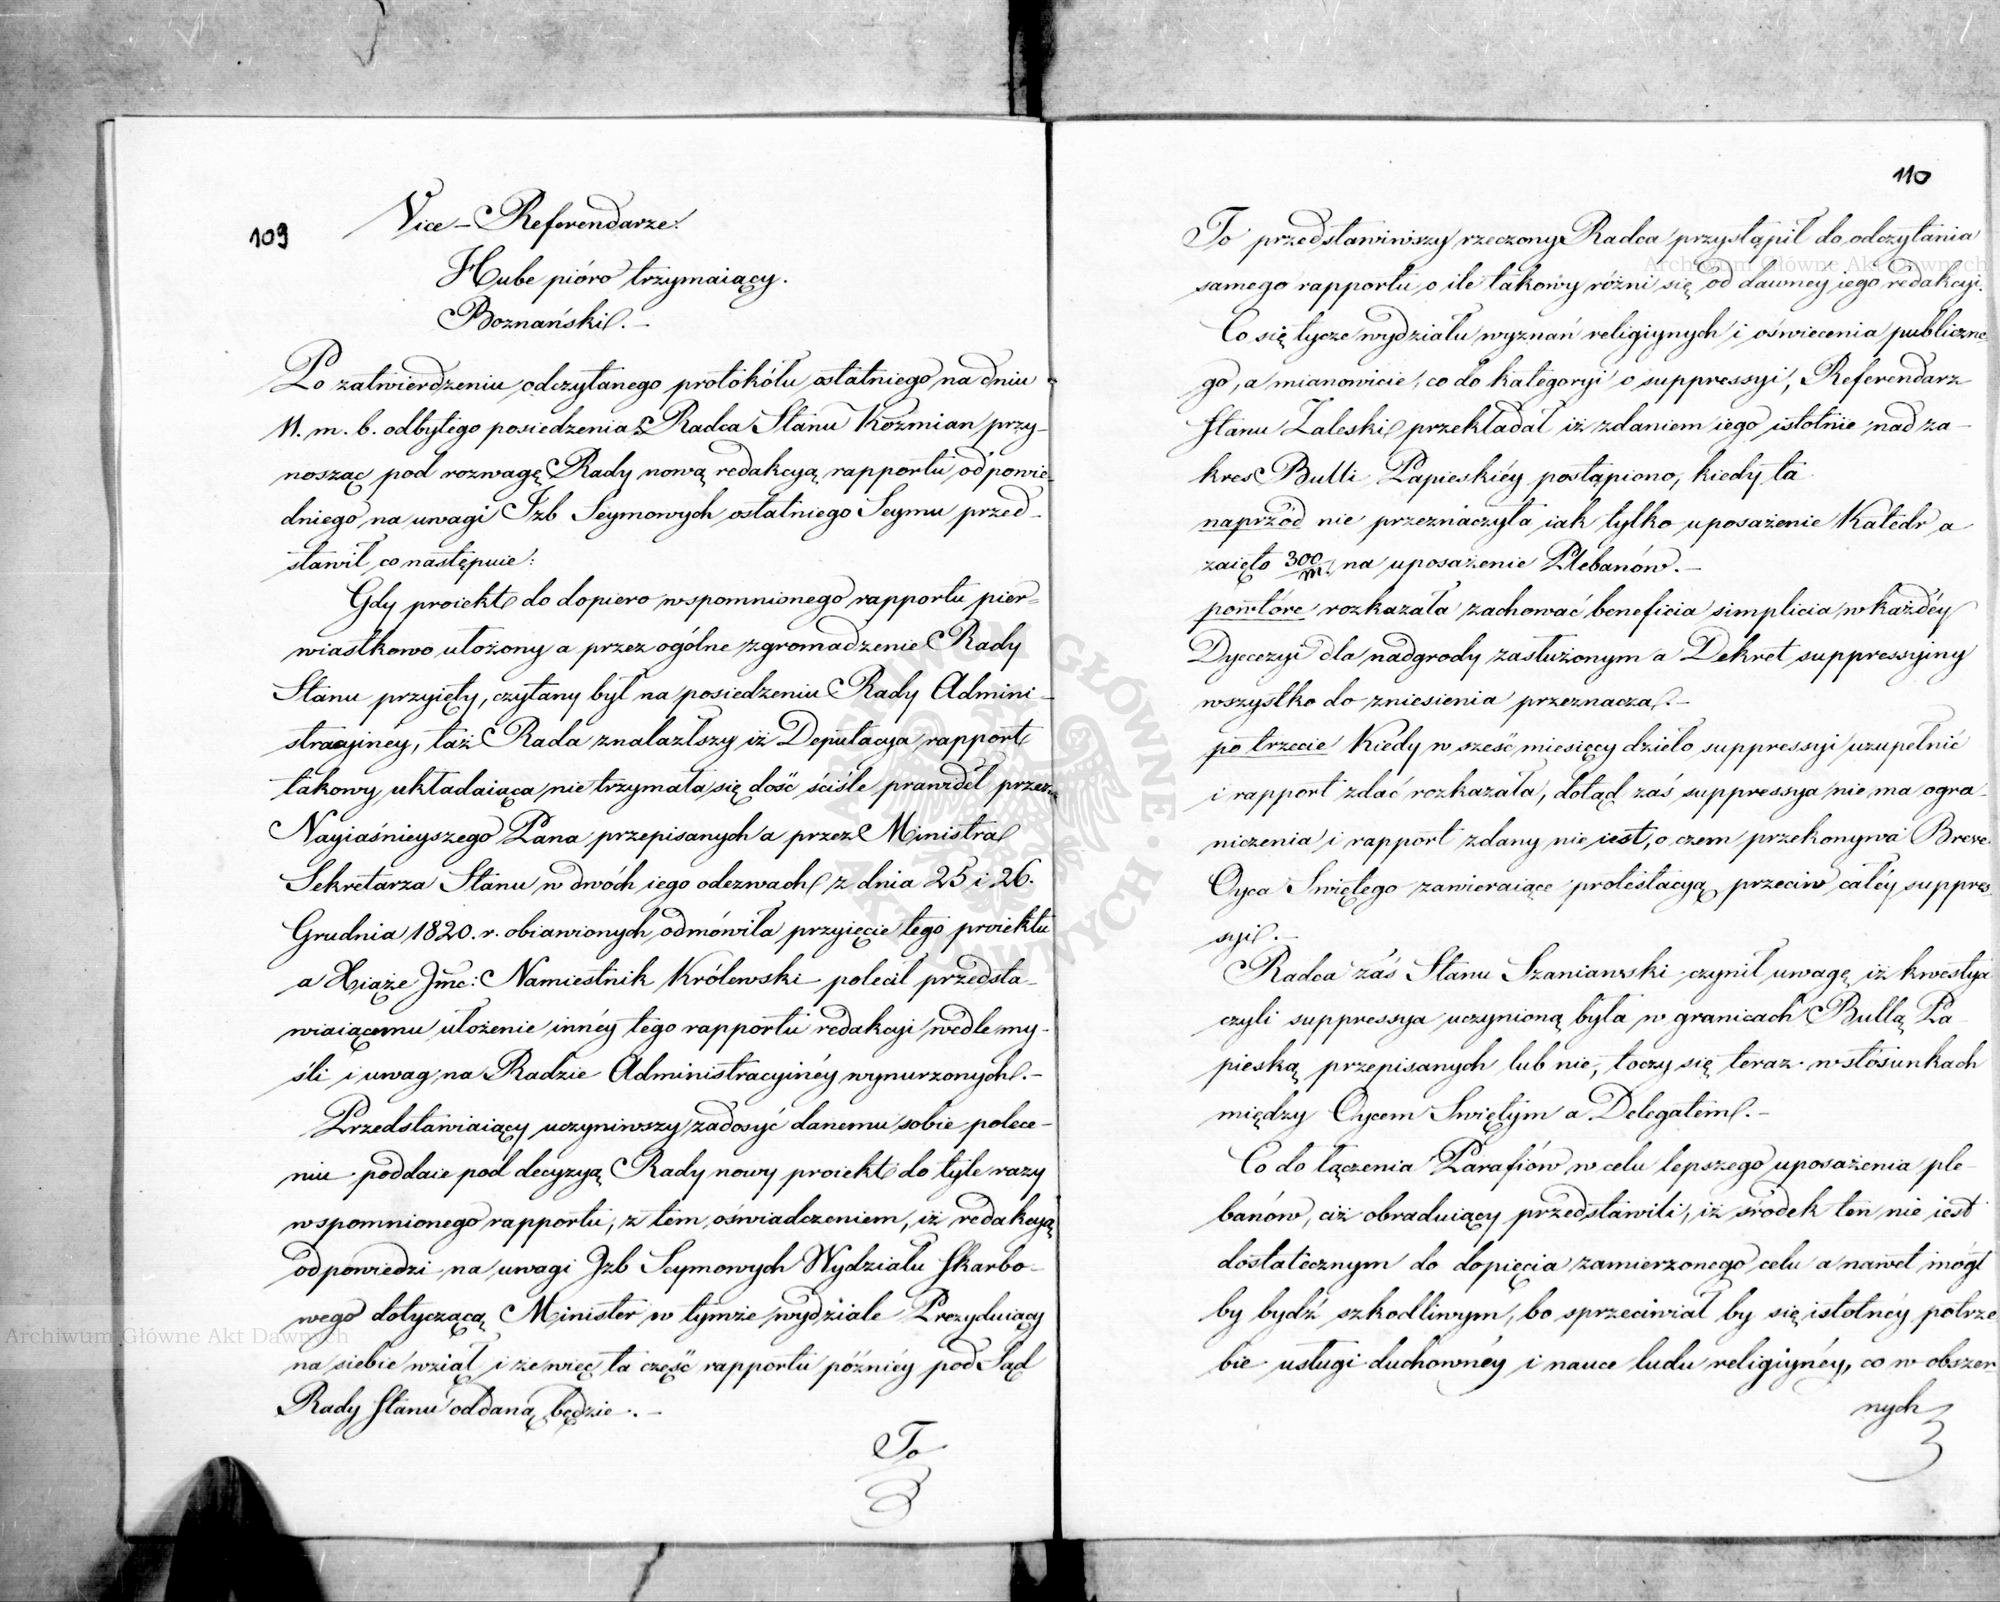 109
Vice-Referendarze:
Hube pióro trzymaiący.
Boznański.-
Po zatwierdzeniu odczytanego protokółu ostatniego na dniu
11. m. b. odbytego posiedzenia Radca Stanu Kozmian przy-
nosząc pod rozwagę Rady nową redakcyą rapportu odpowie-
dniego na uwagi Izb Seymowych ostatniego Seymu przed-
stawił co następuie:
Gdy proiekt do dopiero wspomnionego rapportu pier-
wiastkowo ułożony a przez ogólne zgromadzenie Rady
Stanu przyięty, czytany był na posiedzeniu Rady Admini-
stracyjnéy, taż Rada znalazłszy iż Deputacya rapport
takowy układaiąca nie trzymała się dość ściśle prawideł przez
Nayiaśnieyszego Pana przepisanych a przez Ministra
Sekretarza Stanu w dwóch iego odezwach z dnia 25 i 26.
Grudnia 1820. r. obiawionych odmówiła przyięcie tego proiektu
a Xiąże Jmć: Namiestnik Królewski polecił przedsta-
wiaiącemu ułożenie innéy tego rapportu redakcyi wedle my-
śli i uwag na Radzie Administracyinéy wynurzonych.-
Przedstawiaiący uczyniwszy zadosyć danemu sobie polece-
niu poddaie pod decyzyą Rady nowy proiekt do tyle razy
wspomnionego rapportu, z tem oświadczeniem, iż redakcyą
odpowiedzi na uwagi Izb Seymowych Wydziału Skarbo-
wego dotyczącą Minister w tymże wydziale Prezyduiący
na siebie wziął i że więc ta część rapportu późniéy pod Sąd
Rady Stanu oddaną będzie.-
To
110
To przedstawiwszy rzeczony Radca przystąpił do odczytania
samego rapportu o ile takowy różni się od dawney iego redakcyi.
Co się tycze wydziału wyznań religiynych i oświecenia publiczne-
go, a mianowicie, co do kategoryi o suppressyi, Referendarz
Stanu Zaleski przekładał iż zdaniem iego istotnie nad za-
kres Bulli Papieskiéy postąpiono, kiedy ta
naprzód nie przeznaczyła iak tylko uposażenie Katedr a
zaięto 300/m. na uposażenie Plebanów.-
powtóre rozkazała zachować beneficia simplicia w każdéy
Dyecezyi dla nadgrody zasłużonym a Dekret suppressyiny
wszystko do zniesienia przeznacza.-
po trzecie Kiedy w sześć miesięcy dzieło suppressyi uzupełnić
i rapport zdać rozkazała, dotąd zaś suppressya nie ma ogra-
niczenia i rapport zdany nie iest, o czem przekonywa Breve
Oyca Swiętego zawieraiące protestacyą przeciw całéy suppres-
syi.-
Radca zaś Stanu Szaniawski czynił uwagę iż kwestya
czyli suppressya uczynioną była w granicach Bullą Pa-
pieską przepisanych lub nie, toczy się teraz w stósunkach
między Oycem Swiętym a Delegatem.-
Co do łączenia Parafiów w celu lepszego uposażenia ple-
banów, ciż obraduiący przedstawili, iż środek ten nie iest
dostatecznym do dopięcia zamierzonego celu a nawet mógł
by bydź szkodliwym, bo sprzeciwiał by się istotnéy potrze-
bie usługi duchownéy i nauce ludu religiynéy, co w obszer-
nych
Archiwum Główne Akt Dawnych
Archiwum Główne Akt Dawnych